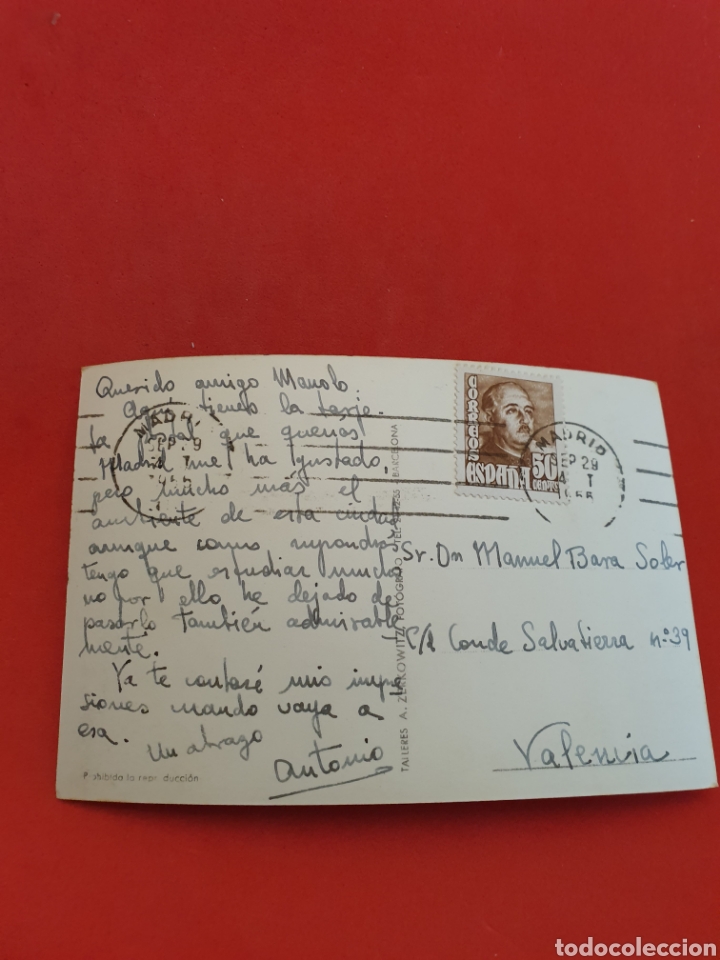 Querido amigo Manolo.
Aquí tienes la tarje-
ta postal que querías
Madrid me ha gustado,
pero mucho más el
ambiente de esta ciudad
aunque como supondrás
tengo que estudiar mucho
no por ello he dejado de
pasarlo también admirable
mente.
Ya te contaré mis impre
siones cuando vaya a
esa.
Un abrazo
Antonio
Prohibida la reproducción
TALLERES A. ZERKOWITZ FOTÓGRAFO BARCELONA
CORREOS
ESPAÑA
50
CENTS
MADRID
SEP 29
MADRID
SEP 29
4 T
Sr. Dn Manuel Bara Soler
C/ Conde Salvatierra nº 39
Valencia
todocoleccion